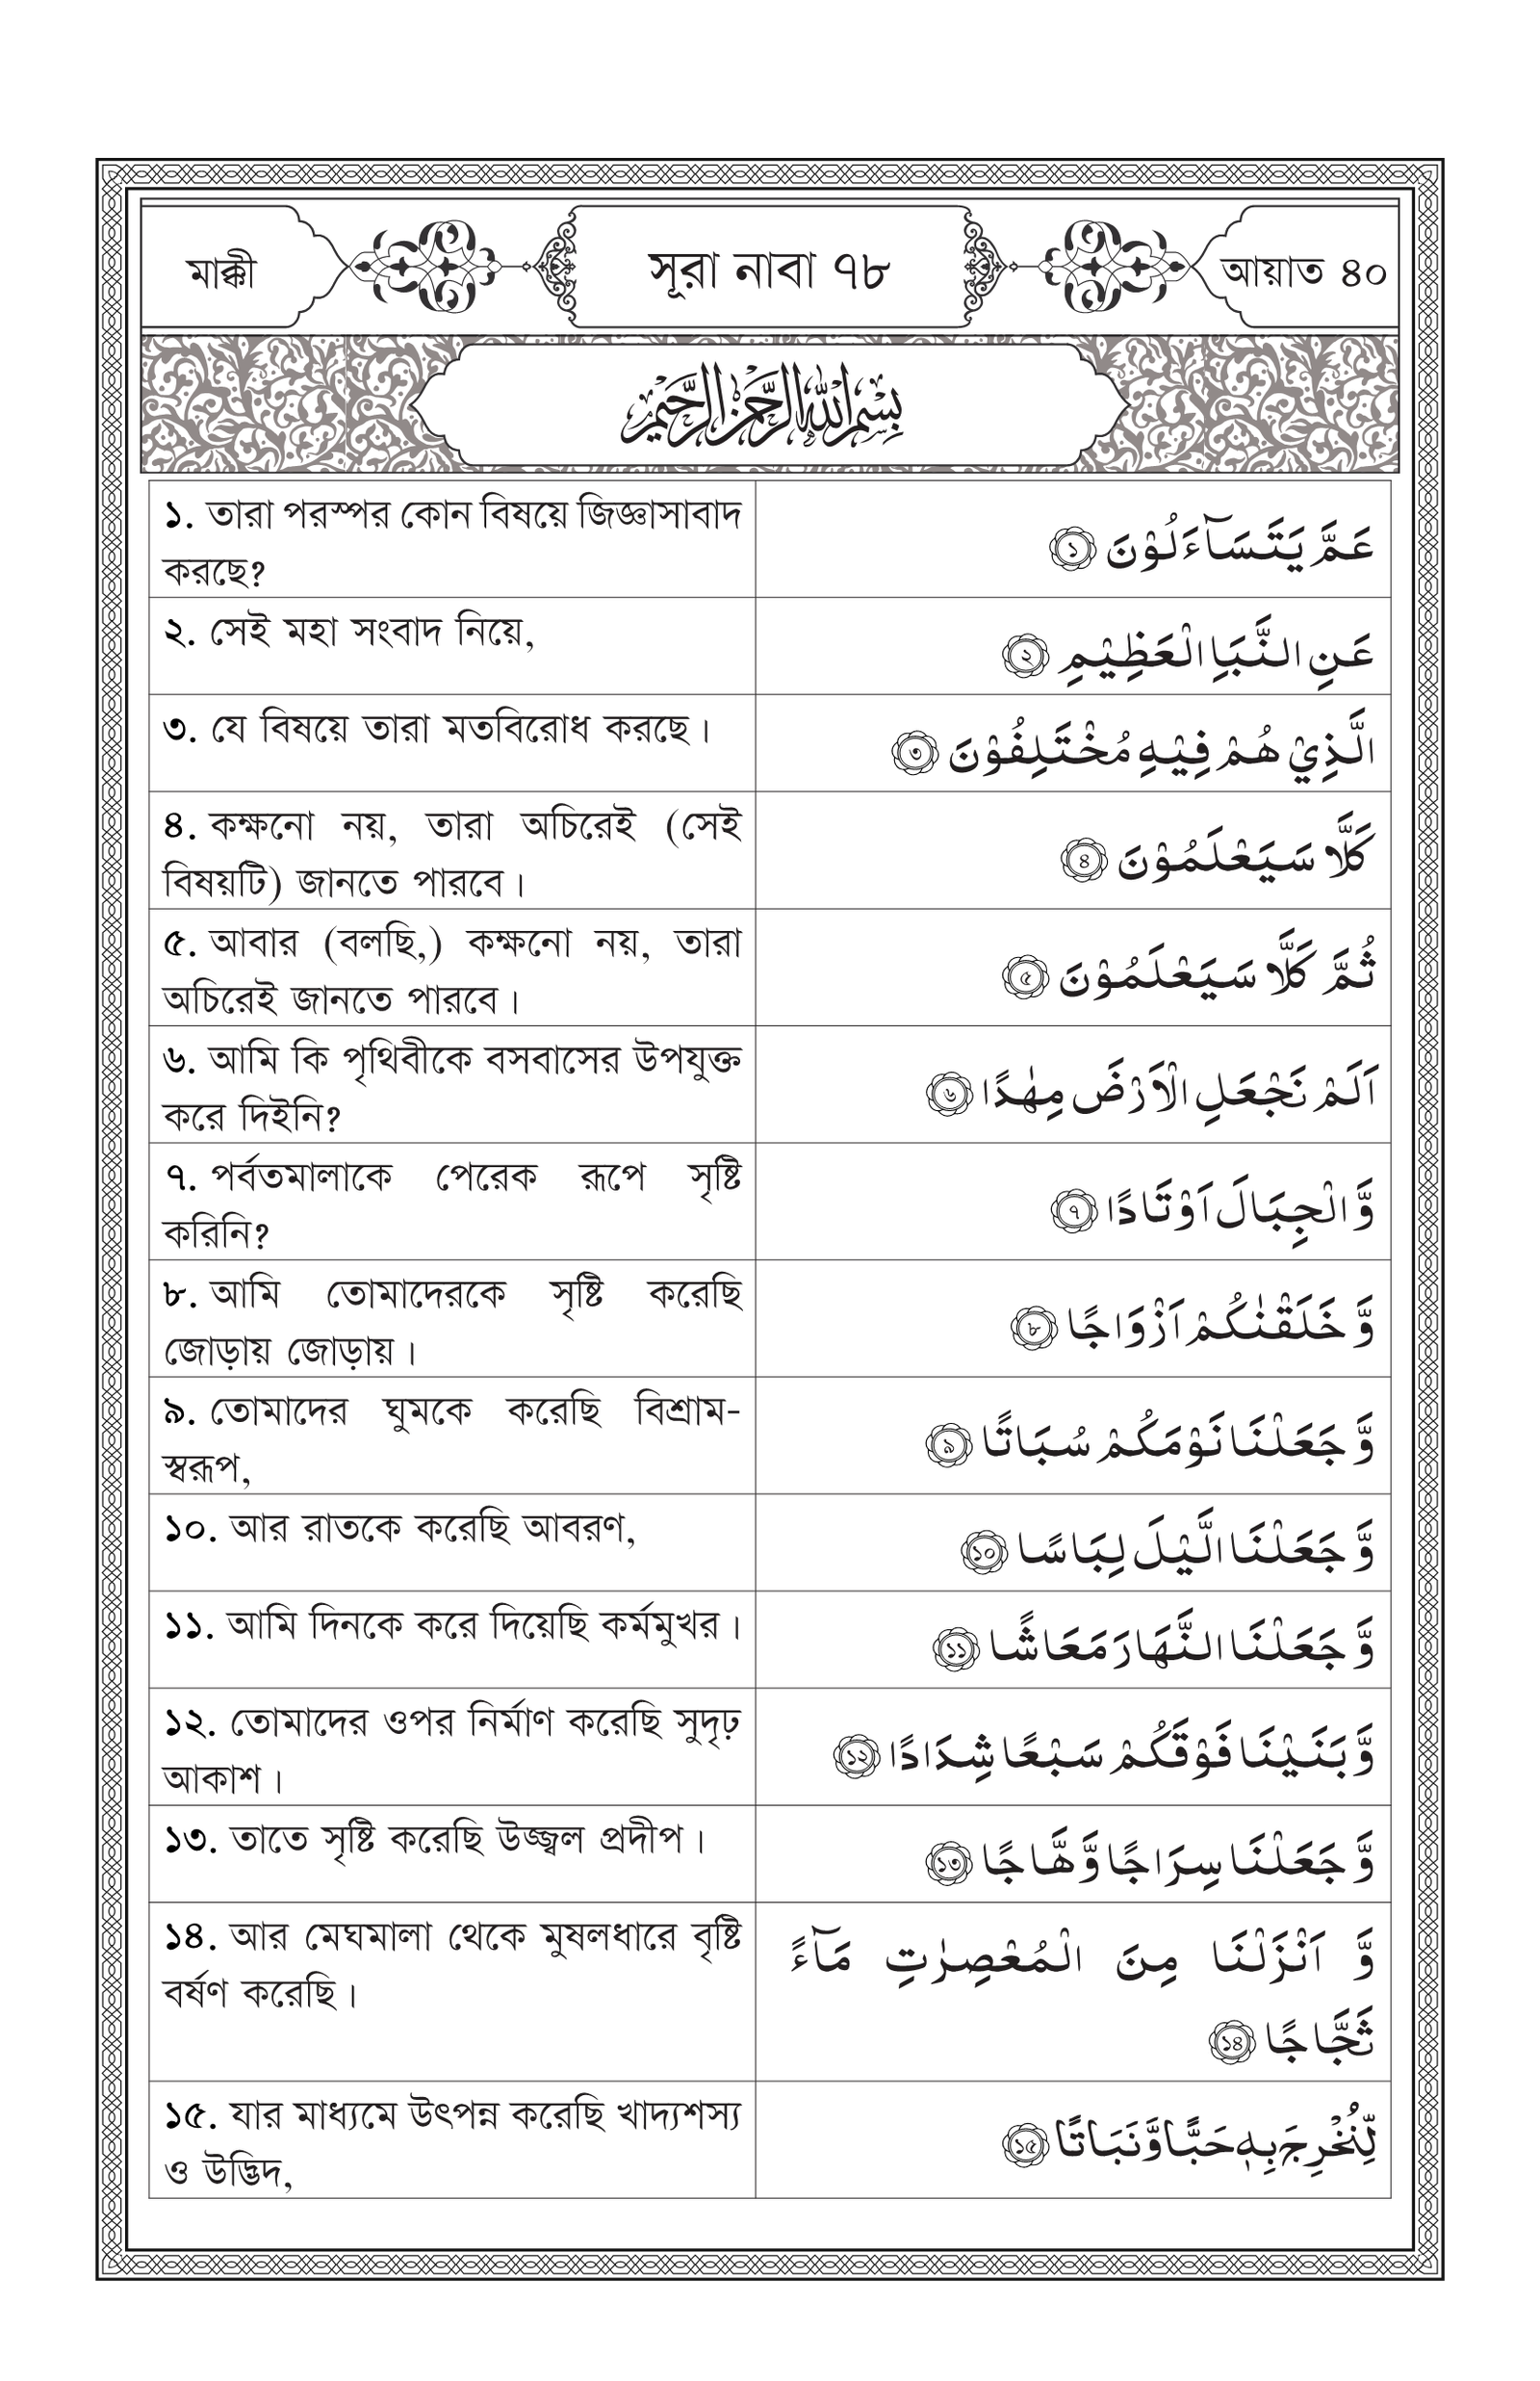 মাক্কী
সূরা নাবা ৭৮
আয়াত ৪০
بِسْمِ اللهِ الرَّحْمٰنِ الرَّحِيْمِ
১. তারা পরস্পর কোন বিষয়ে জিজ্ঞাসাবাদ
করছে?
عَمَّ يَتَسَآءَلُوْنَ ১
২. সেই মহা সংবাদ নিয়ে,
عَنِ النَّبَاِ الْعَظِيْمِ ২
৩. যে বিষয়ে তারা মতবিরোধ করছে।
الَّذِيْ هُمْ فِيْهِ مُخْتَلِفُوْنَ ৩
৪. কক্ষনো নয়, তারা অচিরেই (সেই
বিষয়টি) জানতে পারবে।
كَلَّا سَيَعْلَمُوْنَ ৪
৫. আবার (বলছি,) কক্ষনো নয়, তারা
অচিরেই জানতে পারবে।
ثُمَّ كَلَّا سَيَعْلَمُوْنَ ৫
৬. আমি কি পৃথিবীকে বসবাসের উপযুক্ত
করে দিইনি?
اَلَمْ نَجْعَلِ الْاَرْضَ مِهٰدًا ৬
৭. পর্বতমালাকে পেরেক রূপে সৃষ্টি
করিনি?
وَّ الْجِبَالَ اَوْتَادًا ৭
৮. আমি তোমাদেরকে সৃষ্টি করেছি
জোড়ায় জোড়ায়।
وَّ خَلَقْنٰكُمْ اَزْوَاجًا ৮
৯. তোমাদের ঘুমকে করেছি বিশ্রাম-
স্বরূপ,
وَّ جَعَلْنَا نَوْمَكُمْ سُبَاتًا ৯
১০. আর রাতকে করেছি আবরণ,
وَّ جَعَلْنَا الَّيْلَ لِبَاسًا ১০
১১. আমি দিনকে করে দিয়েছি কর্মমুখর।
وَّ جَعَلْنَا النَّهَارَ مَعَاشًا ১১
১২. তোমাদের ওপর নির্মাণ করেছি সুদৃঢ়
আকাশ।
وَّ بَنَيْنَا فَوْقَكُمْ سَبْعًا شِدَادًا ১২
১৩. তাতে সৃষ্টি করেছি উজ্জ্বল প্রদীপ।
وَّ جَعَلْنَا سِرَاجًا وَّهَّاجًا ১৩
১৪. আর মেঘমালা থেকে মুষলধারে বৃষ্টি
বর্ষণ করেছি।
وَّ اَنْزَلْنَا مِنَ الْمُعْصِرٰتِ مَآءً
ثَجَّاجًا ১৪
১৫. যার মাধ্যমে উৎপন্ন করেছি খাদ্যশস্য
ও উদ্ভিদ,
لِّنُخْرِجَ بِهٖ حَبًّا وَّنَبَاتًا ১৫